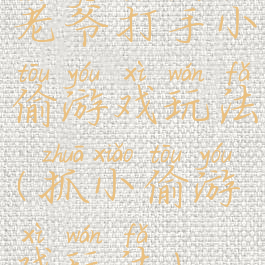 老爷打手小
tōu yóu xì wán fǎ
偷游戏玩法
zhuā xiǎo tōu yóu
(抓小偷游
xì wán fǎ
戏玩法)